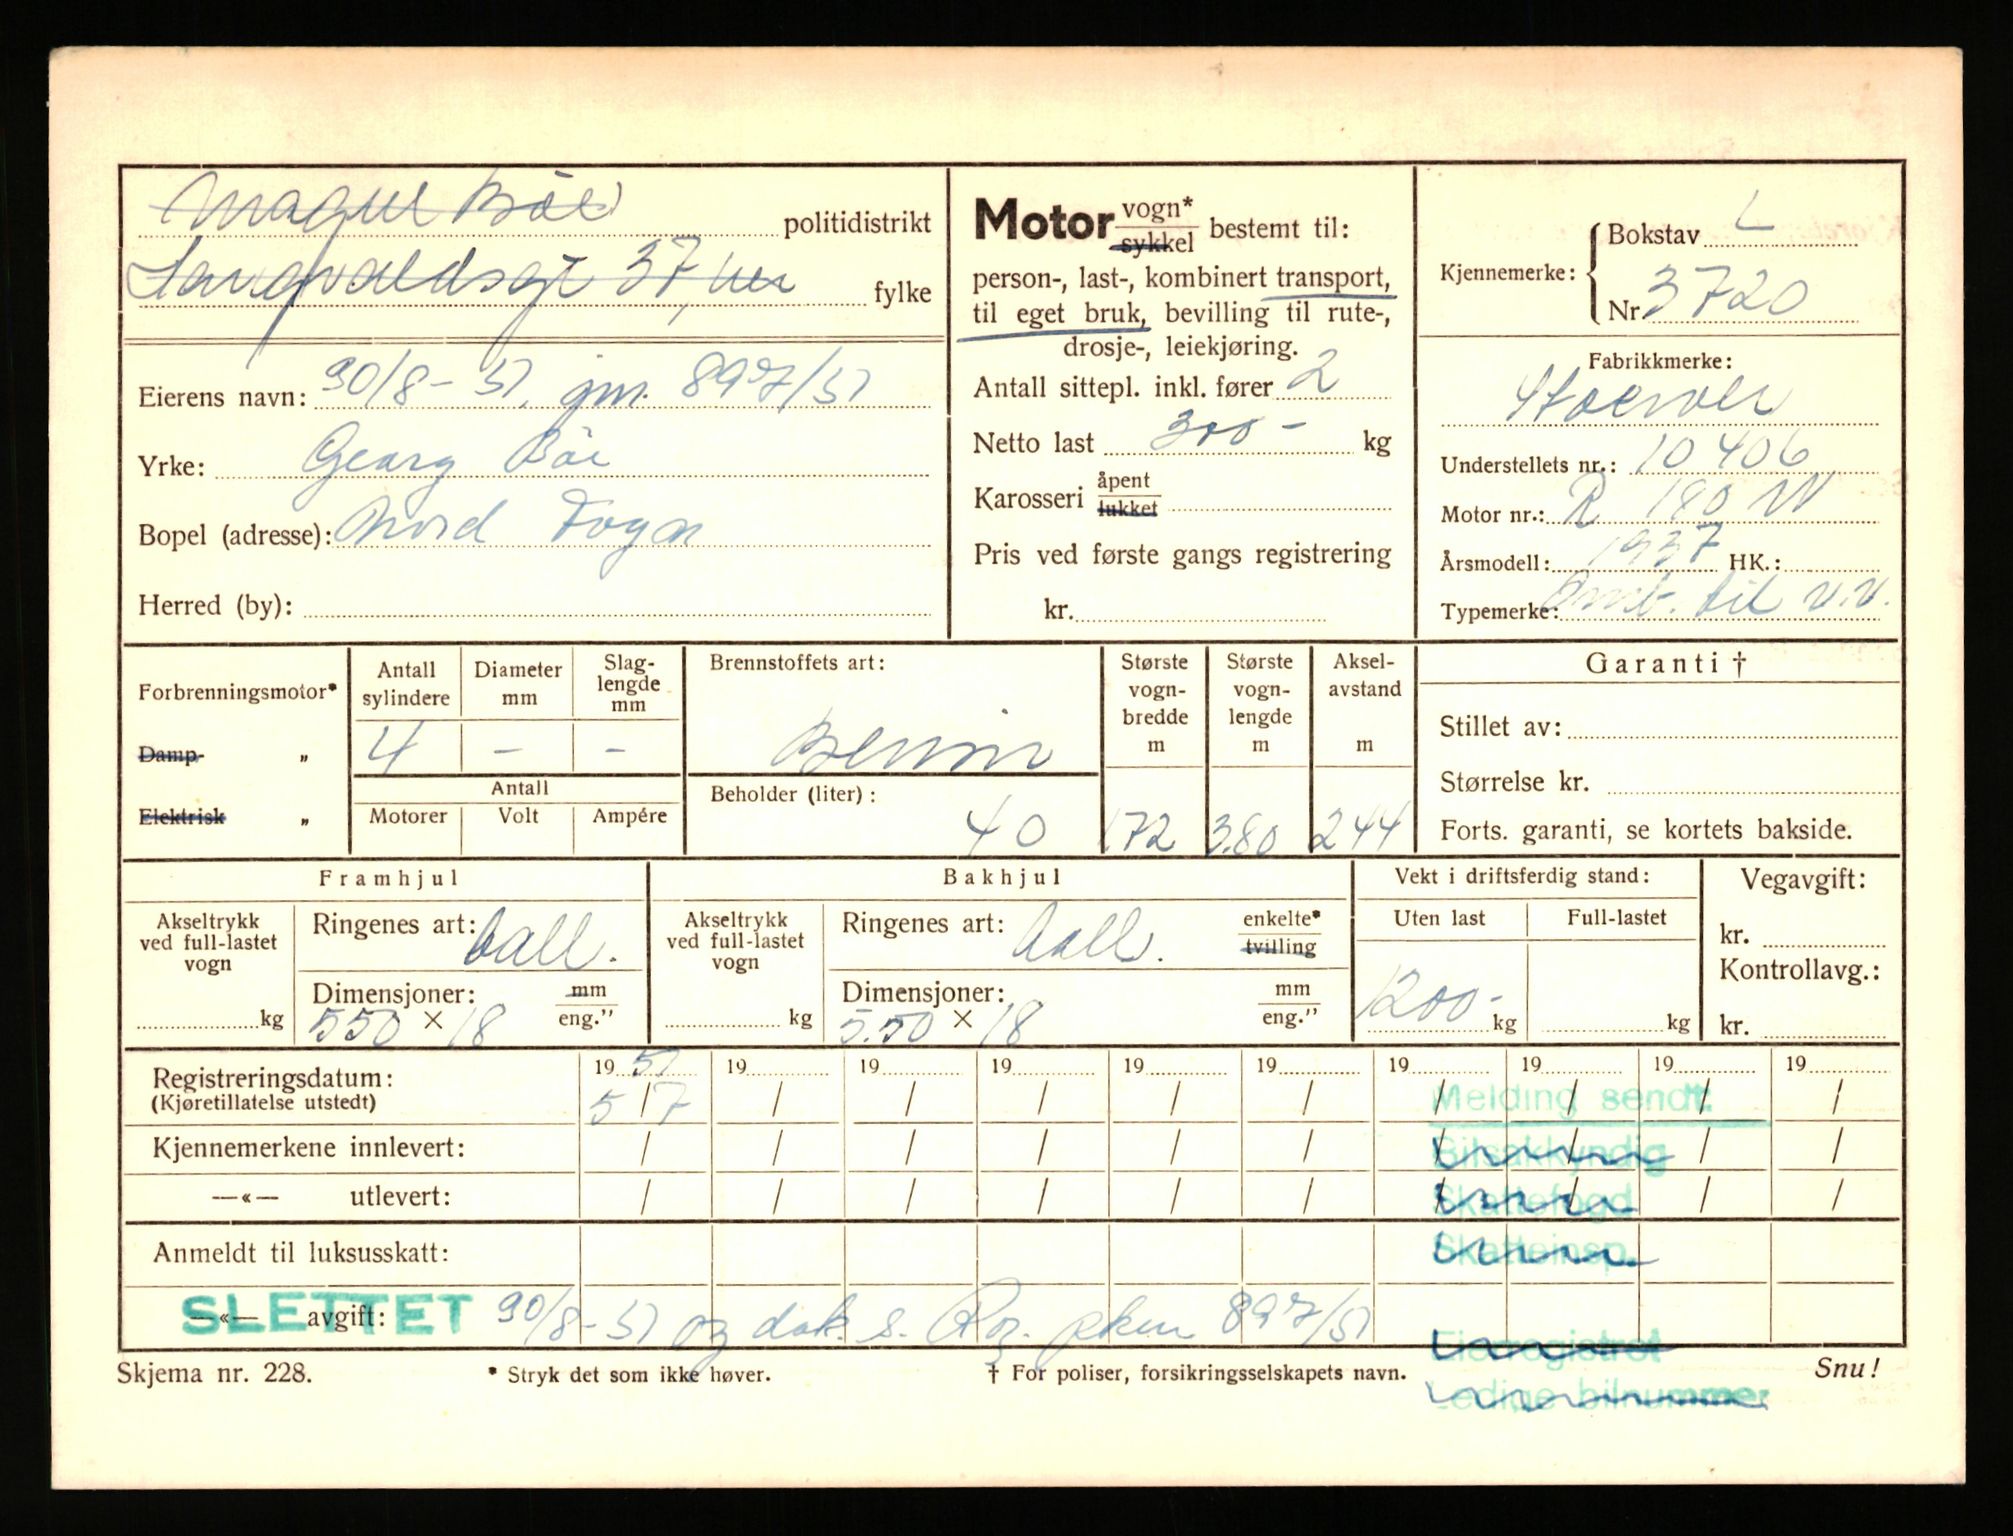 Magnus Böe politidistrikt
Langvaldsgt 37, fylke
Eierens navn: 30/8-51. jnr. 897/51
Yrke: Georg Böe
Bopel (adresse): Nord Fogn
Herred (by):
Motor vogn* sykkel bestemt til:
person-, last-, kombinert transport,
til eget bruk, bevilling til rute-,
drosje-, leiekjøring.
Antall sittepl. inkl. fører 2
Netto last 300 - kg
Karosseri åpent lukket
Pris ved første gangs registrering
kr.
Kjennemerke: Bokstav L
Nr 3720
Fabrikkmerke:
Stoewer
Understellets nr.: 10406
Motor nr.: R 180 W
Årsmodell: 1937 HK.:
Typemerke: Omb. bil v.v.
Forbrenningsmotor*
Damp- „
Elektrisk „
Antall sylindere Diameter mm Slag- lengde mm
4 - -
Antall
Motorer Volt Ampére
Brennstoffets art:
Bensin
Beholder (liter):
40
Største vogn- bredde m
172
Største vogn- lengde m
3.80
Aksel- avstand m
244
Garanti †
Stillet av:
Størrelse kr.
Forts. garanti, se kortets bakside.
Framhjul
Akseltrykk ved full-lastet vogn
kg
Ringenes art: ball.
Dimensjoner: mm eng.”
550 × 18
Bakhjul
Akseltrykk ved full-lastet vogn
kg
Ringenes art: ball. enkelte* tvilling
Dimensjoner: mm eng.”
5.50 × 18
Vekt i driftsferdig stand:
Uten last Full-lastet
1200- kg kg
Vegavgift:
kr.
Kontrollavg.:
kr.
19 51 19 19 19 19 19 19 19 19 19
Registreringsdatum: 5/7 / / / / / / / / /
(Kjøretillatelse utstedt)
Melding sendt:
Kjennemerkene innlevert: / / / / / / / / / /
Bilsakkyndig
—«— utlevert: / / / / / / / / / /
Skattefogd
Anmeldt til luksusskatt:
Skatteinsp.
—«— avgift:
SLETTET 30/8-51 og dok. s. 897/51
Eierregistret
Ledige bilnummer
Skjema nr. 228.
* Stryk det som ikke høver.
† For poliser, forsikringsselskapets navn.
Snu!